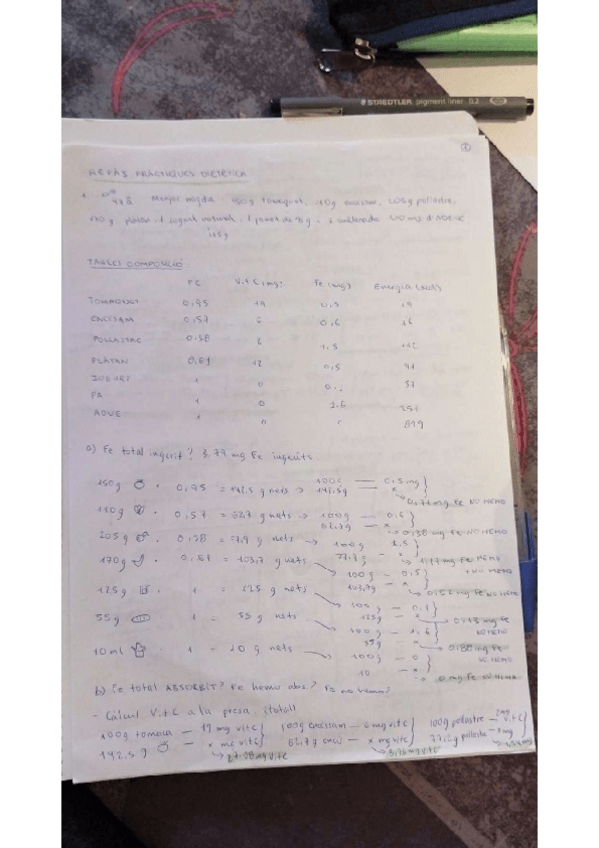 STAEDTLER pigment liner 0.2
1
REPÀS PRÀCTIQUES DIETÈTICA
1. Menjar migdia 150g tomàquet, 110g enciam, 205g pollastre,
170g plàtan, 1 iogurt natural, 1 panet de 55g, 1 cullerada (10 mg) d'AOVE
125g
TAULES COMPOSICIÓ
PC Vit C (mg) Fe (mg) Energia (kcal)
TOMÀQUET 0,95 19 0,5 19
ENCIAM 0,57 6 0,6 16
POLLASTRE 0,38 2 1,5 112
PLÀTAN 0,61 12 0,5 91
IOGURT 1 0 57
PA 1 0 1.6 251
AOVE 1 0 899
a) Fe total ingerit? 3.79 mg Fe ingerits.
150g · 0,95 = 142.5 g nets → 100g — 0,5mg
142,5g — x
→ 0.71 mg Fe NO HEMO
110g · 0,57 = 62.7 g nets → 100g — 0,6
62.7g — x
→ 0.38 mg Fe NO HEMO
205g · 0,38 = 77,9 g nets → 100g 1.5
77,9g — x
→ 1,17 mg Fe HEMO + NO HEMO
170g · 0,61 = 103,7 g nets → 100g — 0,5
103,7g — x
→ 0.52 mg Fe NO HEMO
125g · 1 = 125 g nets → 100g — 0,1
125g — x
→ 0.13 mg Fe NO HEMO
55g · 1 = 55 g nets → 100g — 1.6
55g — x
→ 0.88 mg Fe NO HEMO
10ml · 1 = 10 g nets → 100g — 0
10 — x
→ 0 mg Fe NO HEMO
b) Fe total ABSORBIT? Fe hemo abs.? Fe no hemo?
- Càlcul Vit C a la presa (total)
100g tomaca — 19 mg vit C 100g enciam — 6 mg vit C 100g pollastre — 2mg vit C
142.5 g — x mg vit C 62.7g enci — x mg vit C 77,9g pollastre — x mg
→ 27.08 mg Vit C → 3.76 mg Vit C